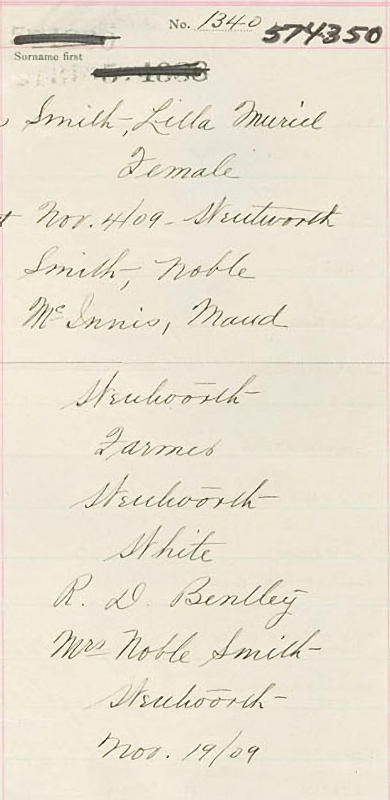 No. 1340 574350
Surname first
Smith, Lilla Muriel
Female
Nov. 4/09 - Wentworth
Smith, Noble
McInnis, Maud
Wentworth
Farmer
Wentworth
White
R. D. Bentley
Mrs Noble Smith
Wentworth
Nov. 19/09